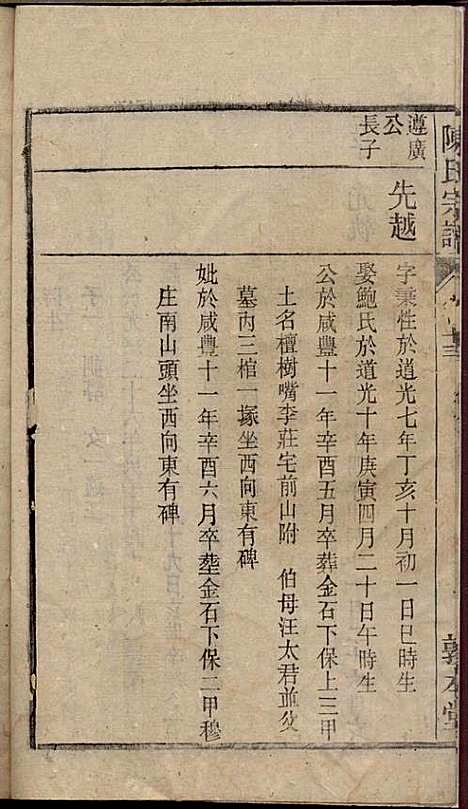 陳氏宗譜
敦本堂
遵廣
公
長子
先越
字秉性於道光七年丁亥十月初一日巳時生
娶鮑氏於道光十年庚寅四月二十日午時生
公於咸豐十一年辛酉五月卒葬金石下保上三甲
土名檀樹嘴李莊宅前山附 伯母汪太君並父
墓內三棺一塚坐西向東有碑
妣於咸豐十一年辛酉六月卒塟金石下保二甲穆
庄南山頭坐西向東有碑